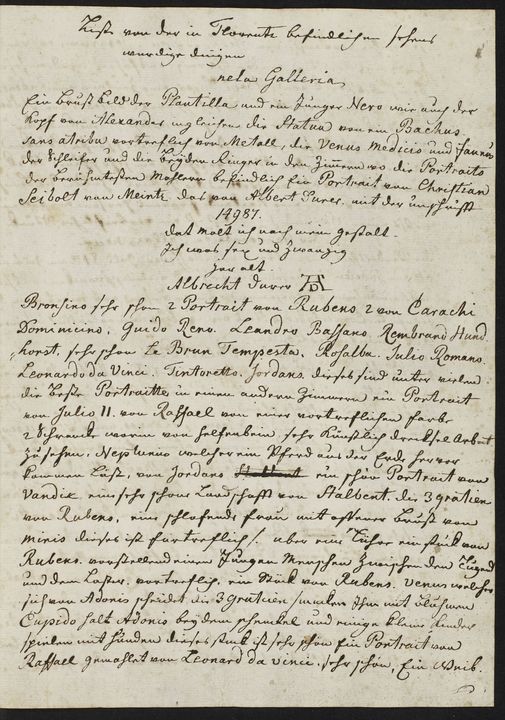 Liste von der in Florentz befindlichen sehens
wurdige dingen
nela Galleria
Ein Brust bild der Plautilla und ein Junger Nero wie auch der
Kopf von Alexander ingleichen die Statua von ein Bachus
sans atribu vortreflich von Metall, die Venus Medicis und Faunus
der Schleifer und die beyden Ringer in den Zimern wo die Portraits
der berühmtesten Mahlern befindlich Ein Portrait von Christian
Seibolt von Meintz. das von Albert Durer mit der umschrifft
14987.
dat malt ich nach meim gestalt
Ich was sex und zwanzig
Jar alt.
Albrecht Durer AD
Bronsino sehr schon 2 Portrait von Rubens 2 von Carachi
Dominicino, Guido Reno. Leandro Bassano. Rembrand Hund
horst, sehr schon Le Brun Tempesta, Rosalba. Julio Romano.
Leonardo da Vinci, Tintoretto, Jordans. dieses sind unter vielen
die beste Portraitte in einen andern Zimmern ein Portrait
von Julio II. von Raffael von einer vortreflichen farbe
2 Schranke worin von helfenbein sehr Künstlich drecksel Arbeit
zu sehen. Neptunus welcher ein Pferd aus der Erde hervor
kommen läst, von Jordans ein schön Portrait von
Vandik ein sehr schone Landschafft von Stalbent. die 3 gratien
von Rubens, eine schlafende frau mit offener Brust von
mieris dieses ist fürtreflich! uber eine Thüre ein stük von
Rubens. vorstellend einen Jungen Menschen zwischen den Tugend
und dem Laster. vortreflich. ein Stük von Rubens. Venus welcher
sich von Adonis scheidet die 3 Gratien Ihm mit
Cupido halt Adonis bey dem schenkel und einige kleine kinder
spielen mit hunden dieses stuk ist sehr schön Ein Portrait von
Raffael gemahlet von Leonard da vinci. sehr schön, Ein Weib.